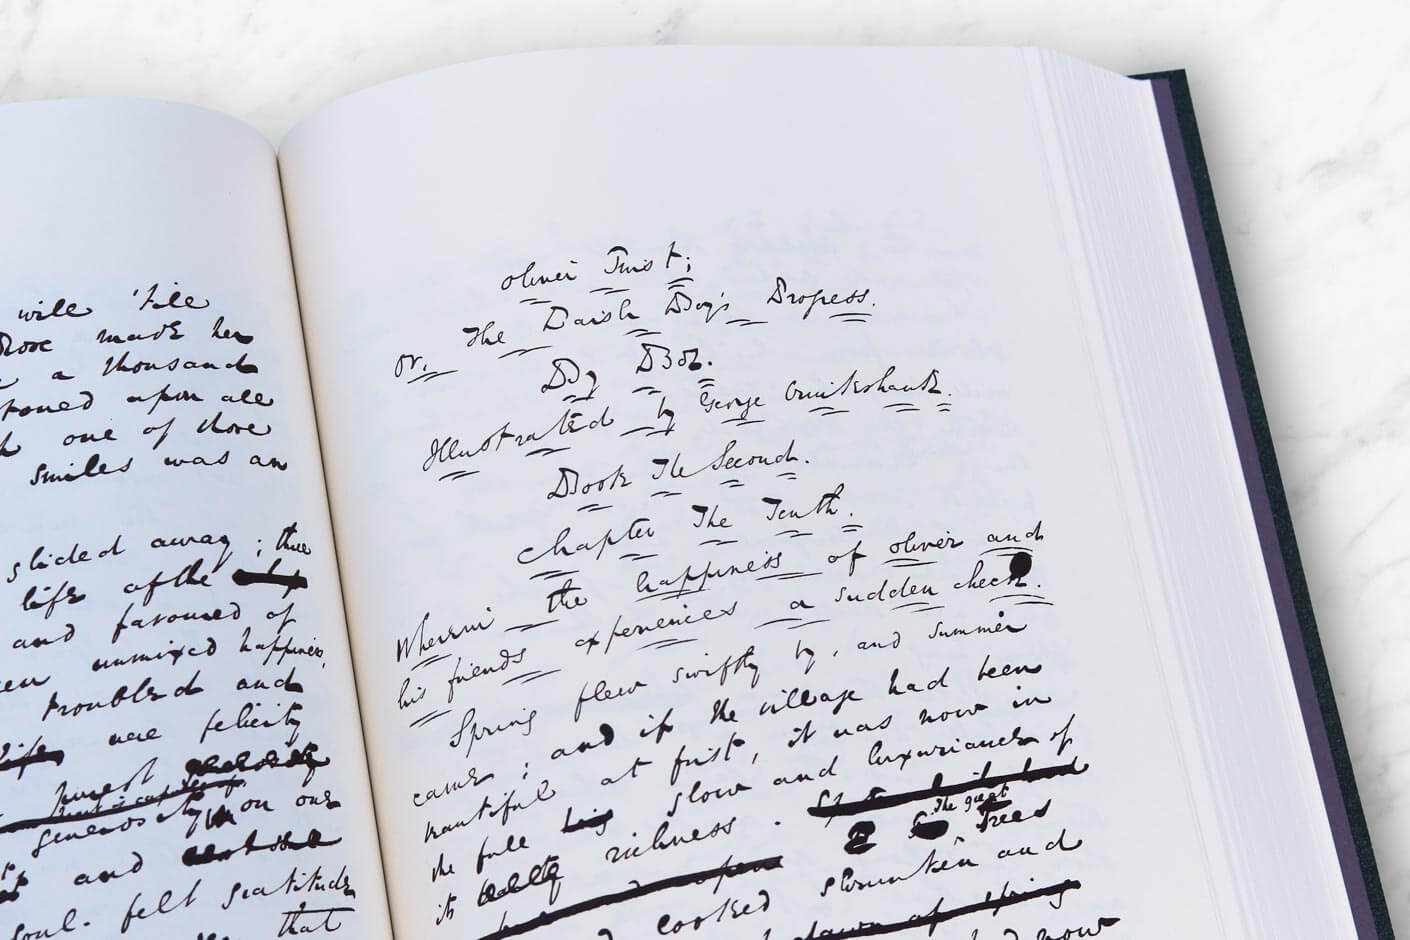 will 'till
Rose made her
a thousand
upon all
one of those
smiles was an
slided away ; three
life of the
and favoured of
unmixed happiness,
troubled and
life were felicity
purest
generosity on our
and
soul. felt gratitude
that
Oliver Twist;
or, The Parish Boy's Progress.
By Boz.
Illustrated by George Cruikshank.
Book The Second.
Chapter The Tenth.
Wherein the happiness of Oliver and
his friends experiences a sudden check.
Spring flew swiftly by, and summer
came ; and if the village had been
beautiful at first, it was now in
the full slow and luxuriance of
its richness . The great trees
looked shrunken and
now